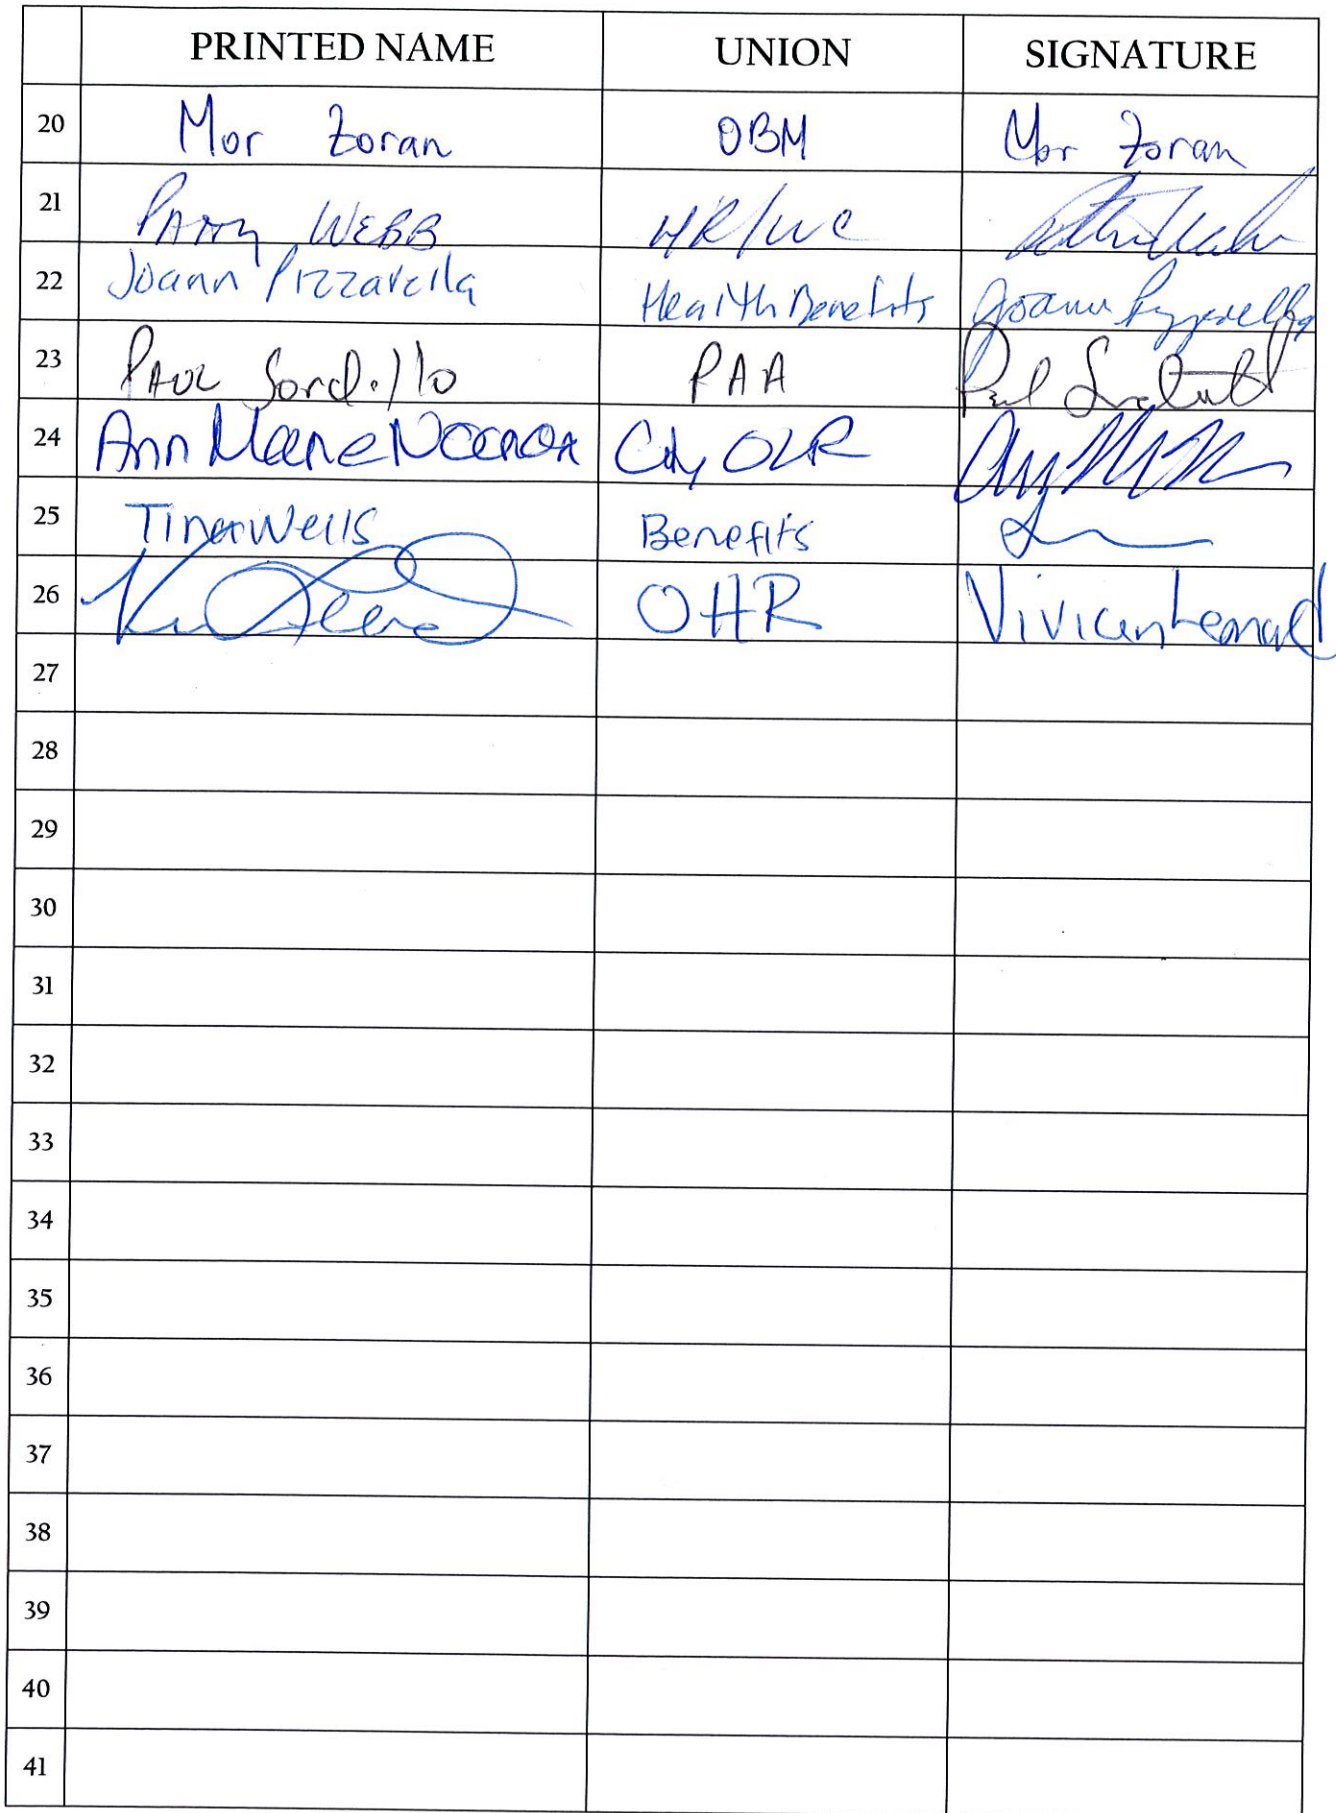 PRINTED NAME UNION SIGNATURE
20 Mor Zoran OBM Mor Zoran
21 Patty WEBB HR/WC
22 Joann Pizzarella Health Benefits Joann Pizzarella
23 PAUL Sordillo PAA Paul
24 Ann Marie City OLR
25 Tina Wells Benefits
26 OHR Vivian Leonard
27
28
29
30
31
32
33
34
35
36
37
38
39
40
41